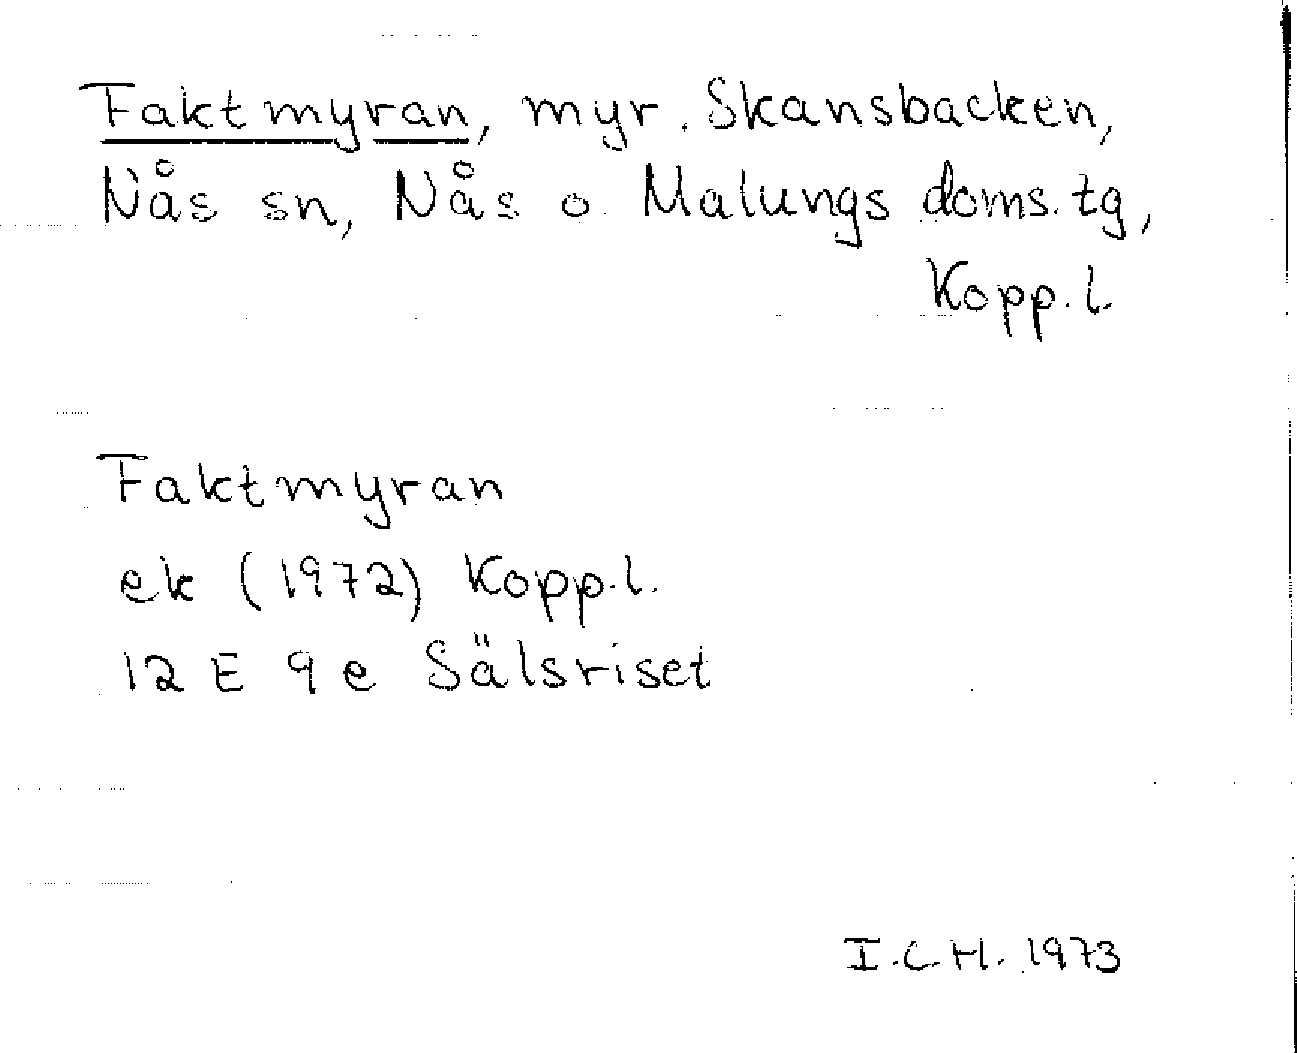 Faktmyran, myr. Skansbacken,
Nås sn, Nås o. Malungs doms.tg,
Kopp.l.
Faktmyran
ek (1972) Kopp.l.
12 E 9 e Sälsriset
I.C.H. 1973